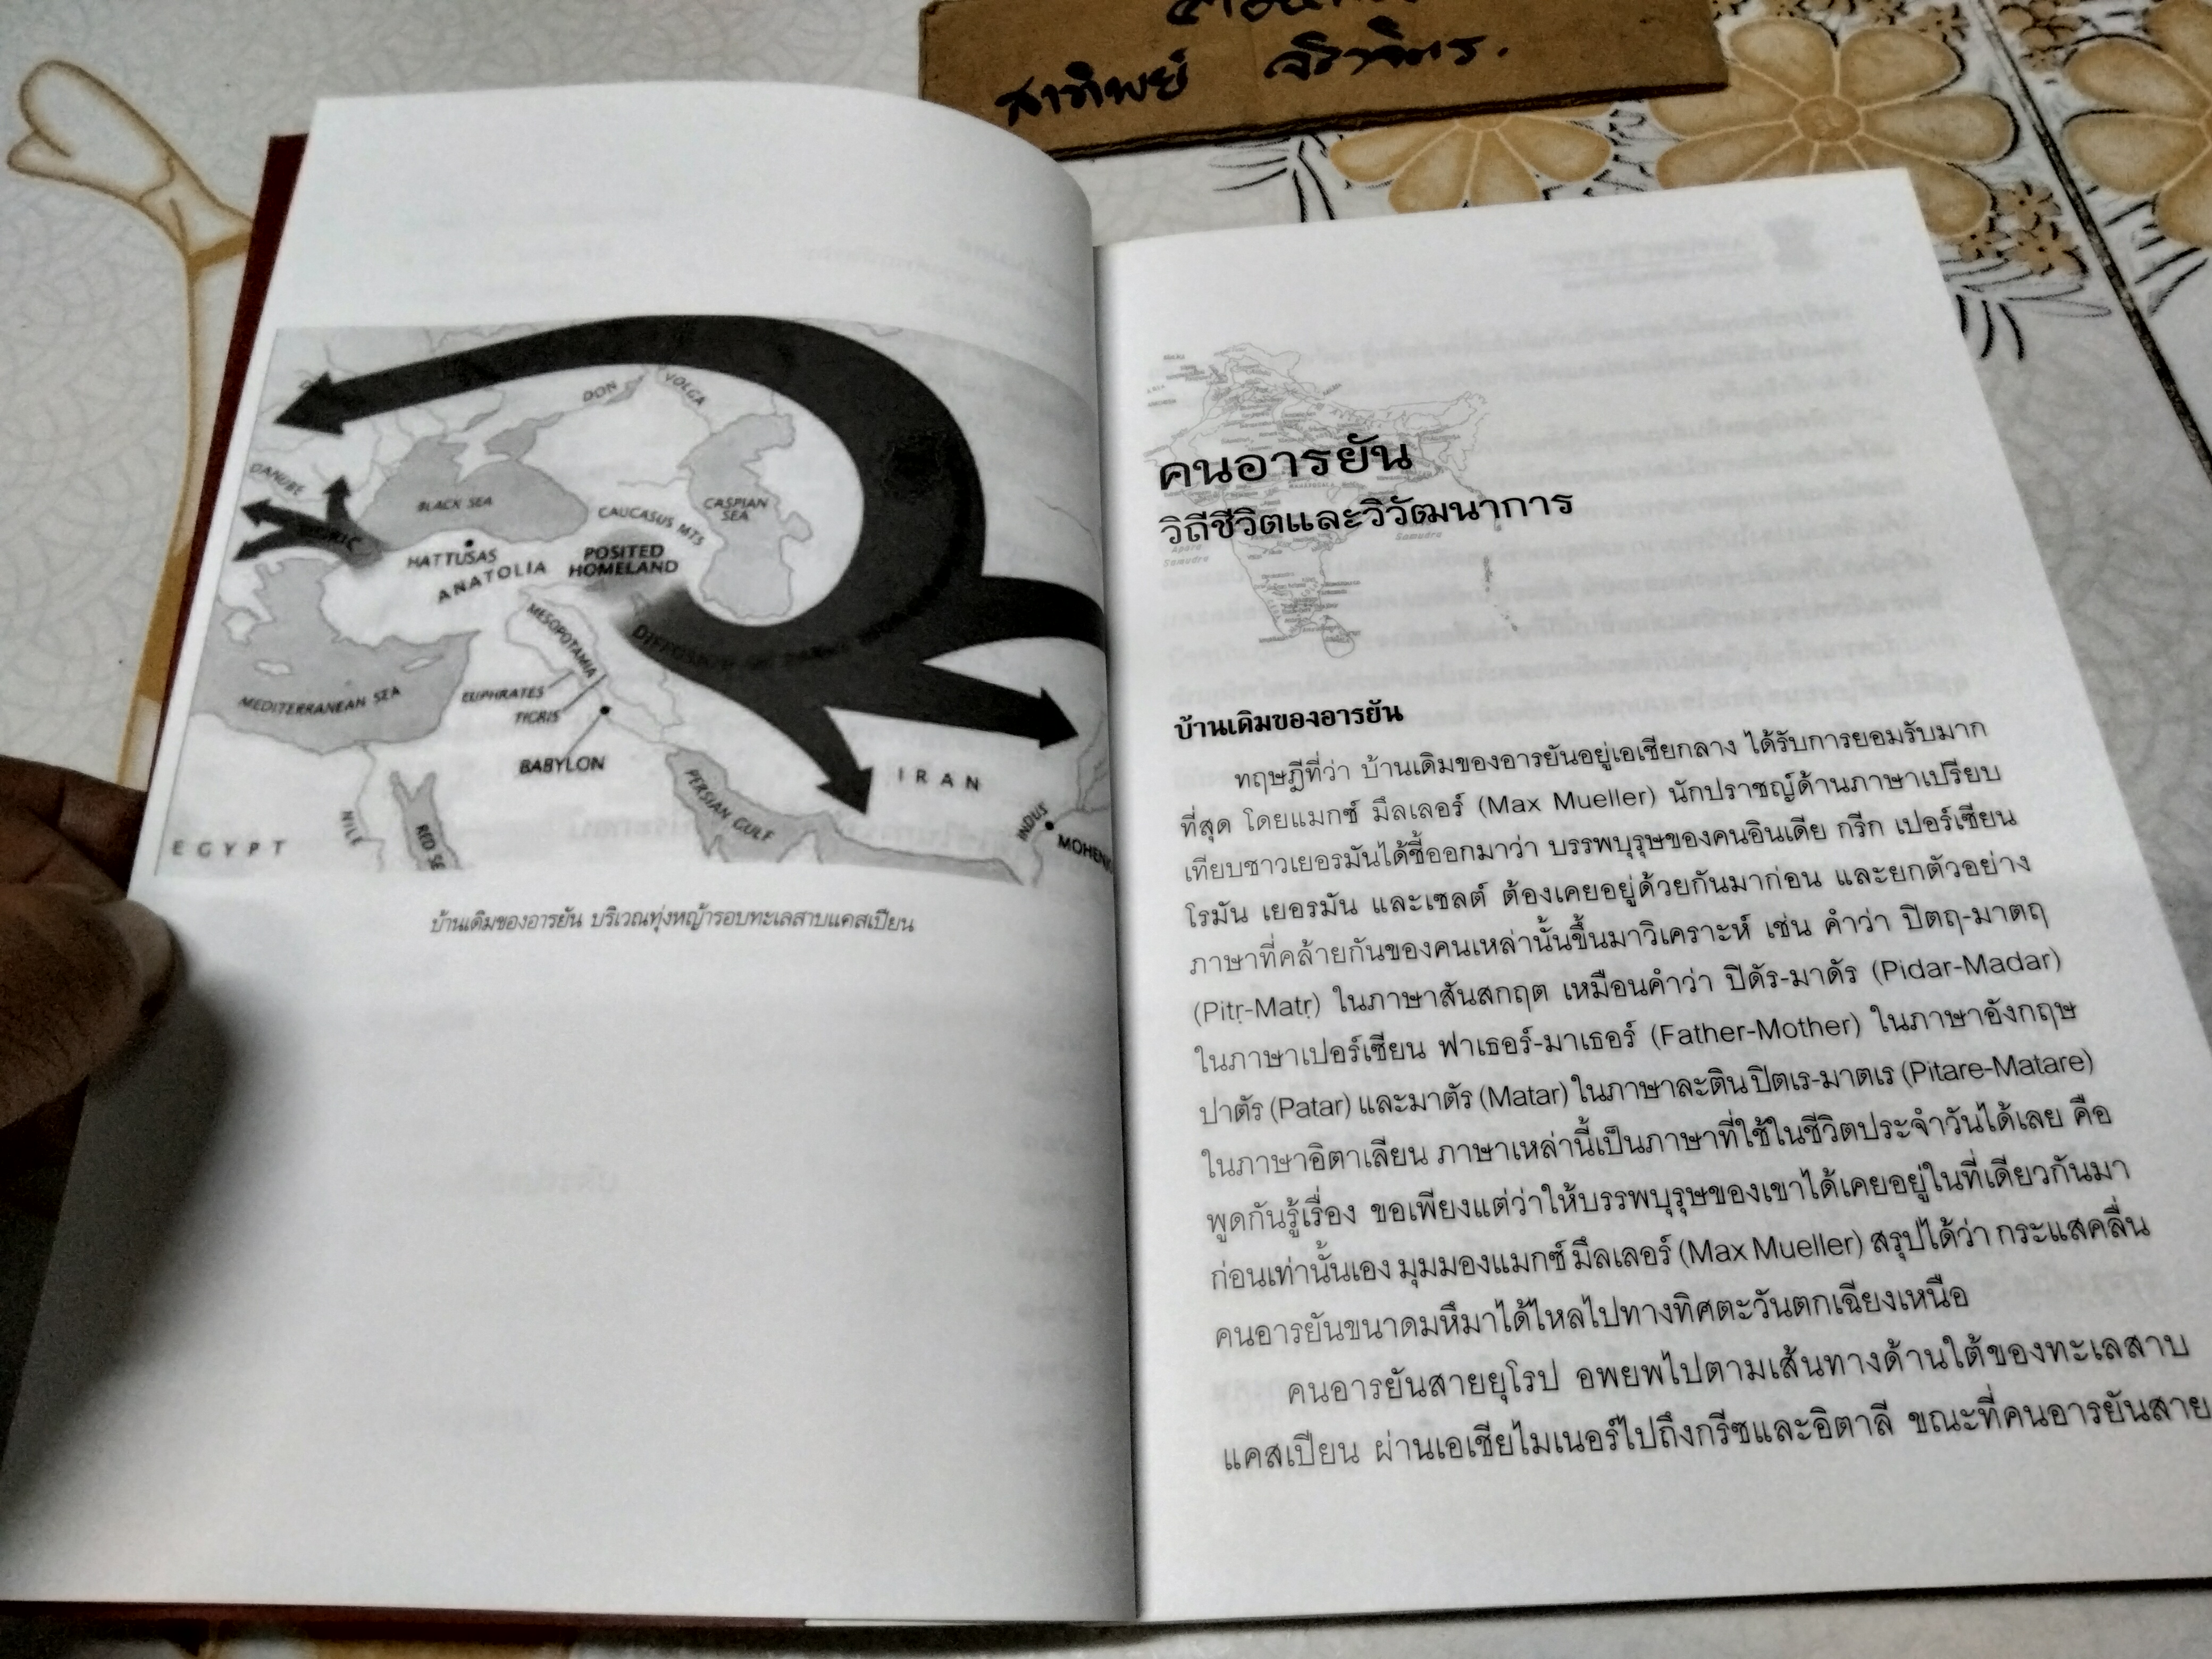 สาทิพย์
DON
VOLGA
DANUBE
BLACK SEA
CASPIAN
SEA
CAUCASUS MTS
HATTUSAS
ANATOLIA
POSITED
HOMELAND
MESOPOTAMIA
MEDITERRANEAN SEA
EUPHRATES
TIGRIS
BABYLON
IRAN
PERSIAN GULF
EGYPT
NILE
RED SE
INDUS
MOHEN
บ้านเดิมของอารยัน บริเวณทุ่งหญ้ารอบทะเลสาบแคสเปียน
คนอารยัน
วิถีชีวิตและวิวัฒนาการ
บ้านเดิมของอารยัน
ทฤษฎีที่ว่า บ้านเดิมของอารยันอยู่เอเชียกลาง ได้รับการยอมรับมาก
ที่สุด โดยแมกซ์ มึลเลอร์ (Max Mueller) นักปราชญ์ด้านภาษาเปรียบ
เทียบชาวเยอรมันได้ชี้ออกมาว่า บรรพบุรุษของคนอินเดีย กรีก เปอร์เซียน
โรมัน เยอรมัน และเซลต์ ต้องเคยอยู่ด้วยกันมาก่อน และยกตัวอย่าง
ภาษาที่คล้ายกันของคนเหล่านั้นขึ้นมาวิเคราะห์ เช่น คำว่า ปิตฤ-มาตฤ
(Pitṛ-Matṛ) ในภาษาสันสกฤต เหมือนคำว่า ปิดัร-มาดัร (Pidar-Madar)
ในภาษาเปอร์เซียน ฟาเธอร์-มาเธอร์ (Father-Mother) ในภาษาอังกฤษ
ปาตัร (Patar) และมาตัร (Matar) ในภาษาละติน ปิตเร-มาตเร (Pitare-Matare)
ในภาษาอิตาเลียน ภาษาเหล่านี้เป็นภาษาที่ใช้ในชีวิตประจำวันได้เลย คือ
พูดกันรู้เรื่อง ขอเพียงแต่ว่าให้บรรพบุรุษของเขาได้เคยอยู่ในที่เดียวกันมา
ก่อนเท่านั้นเอง มุมมองแมกซ์ มึลเลอร์ (Max Mueller) สรุปได้ว่า กระแสคลื่น
คนอารยันขนาดมหึมาได้ไหลไปทางทิศตะวันตกเฉียงเหนือ
คนอารยันสายยุโรป อพยพไปตามเส้นทางด้านใต้ของทะเลสาบ
แคสเปียน ผ่านเอเชียไมเนอร์ไปถึงกรีซและอิตาลี ขณะที่คนอารยันสาย